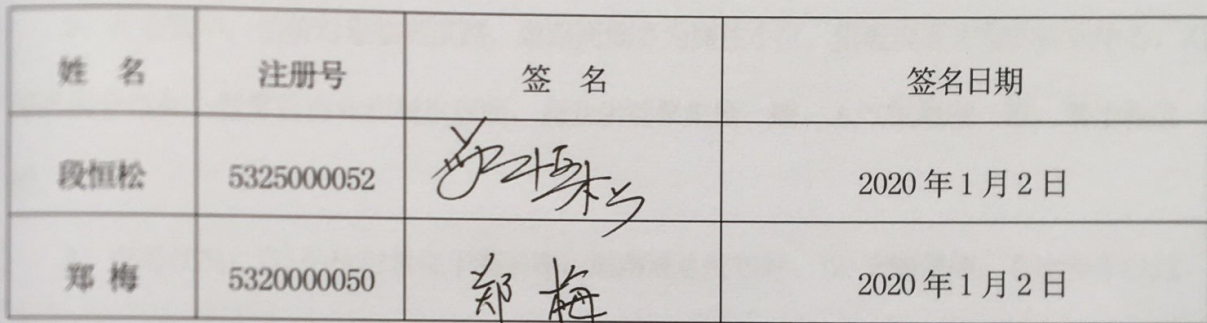 姓 名 注册号 签 名 签名日期
段恒松 5325000052 段恒松 2020年1月2日
郑 梅 5320000050 郑 梅 2020年1月2日